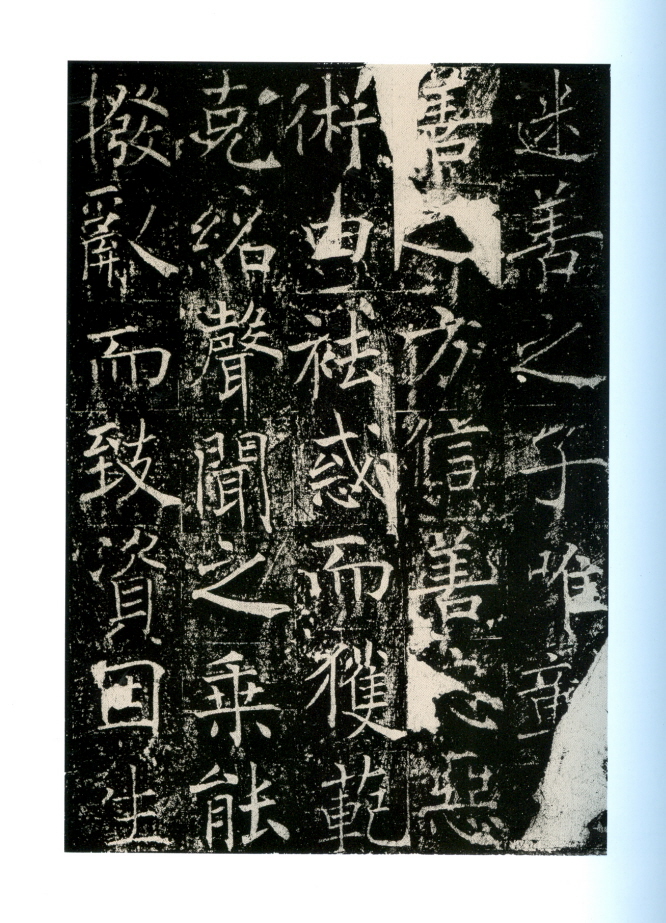 迷善之子唯
善之方信善惡
術由祛惑而獲範
克紹聲聞之乗能
撥亂而致資因生